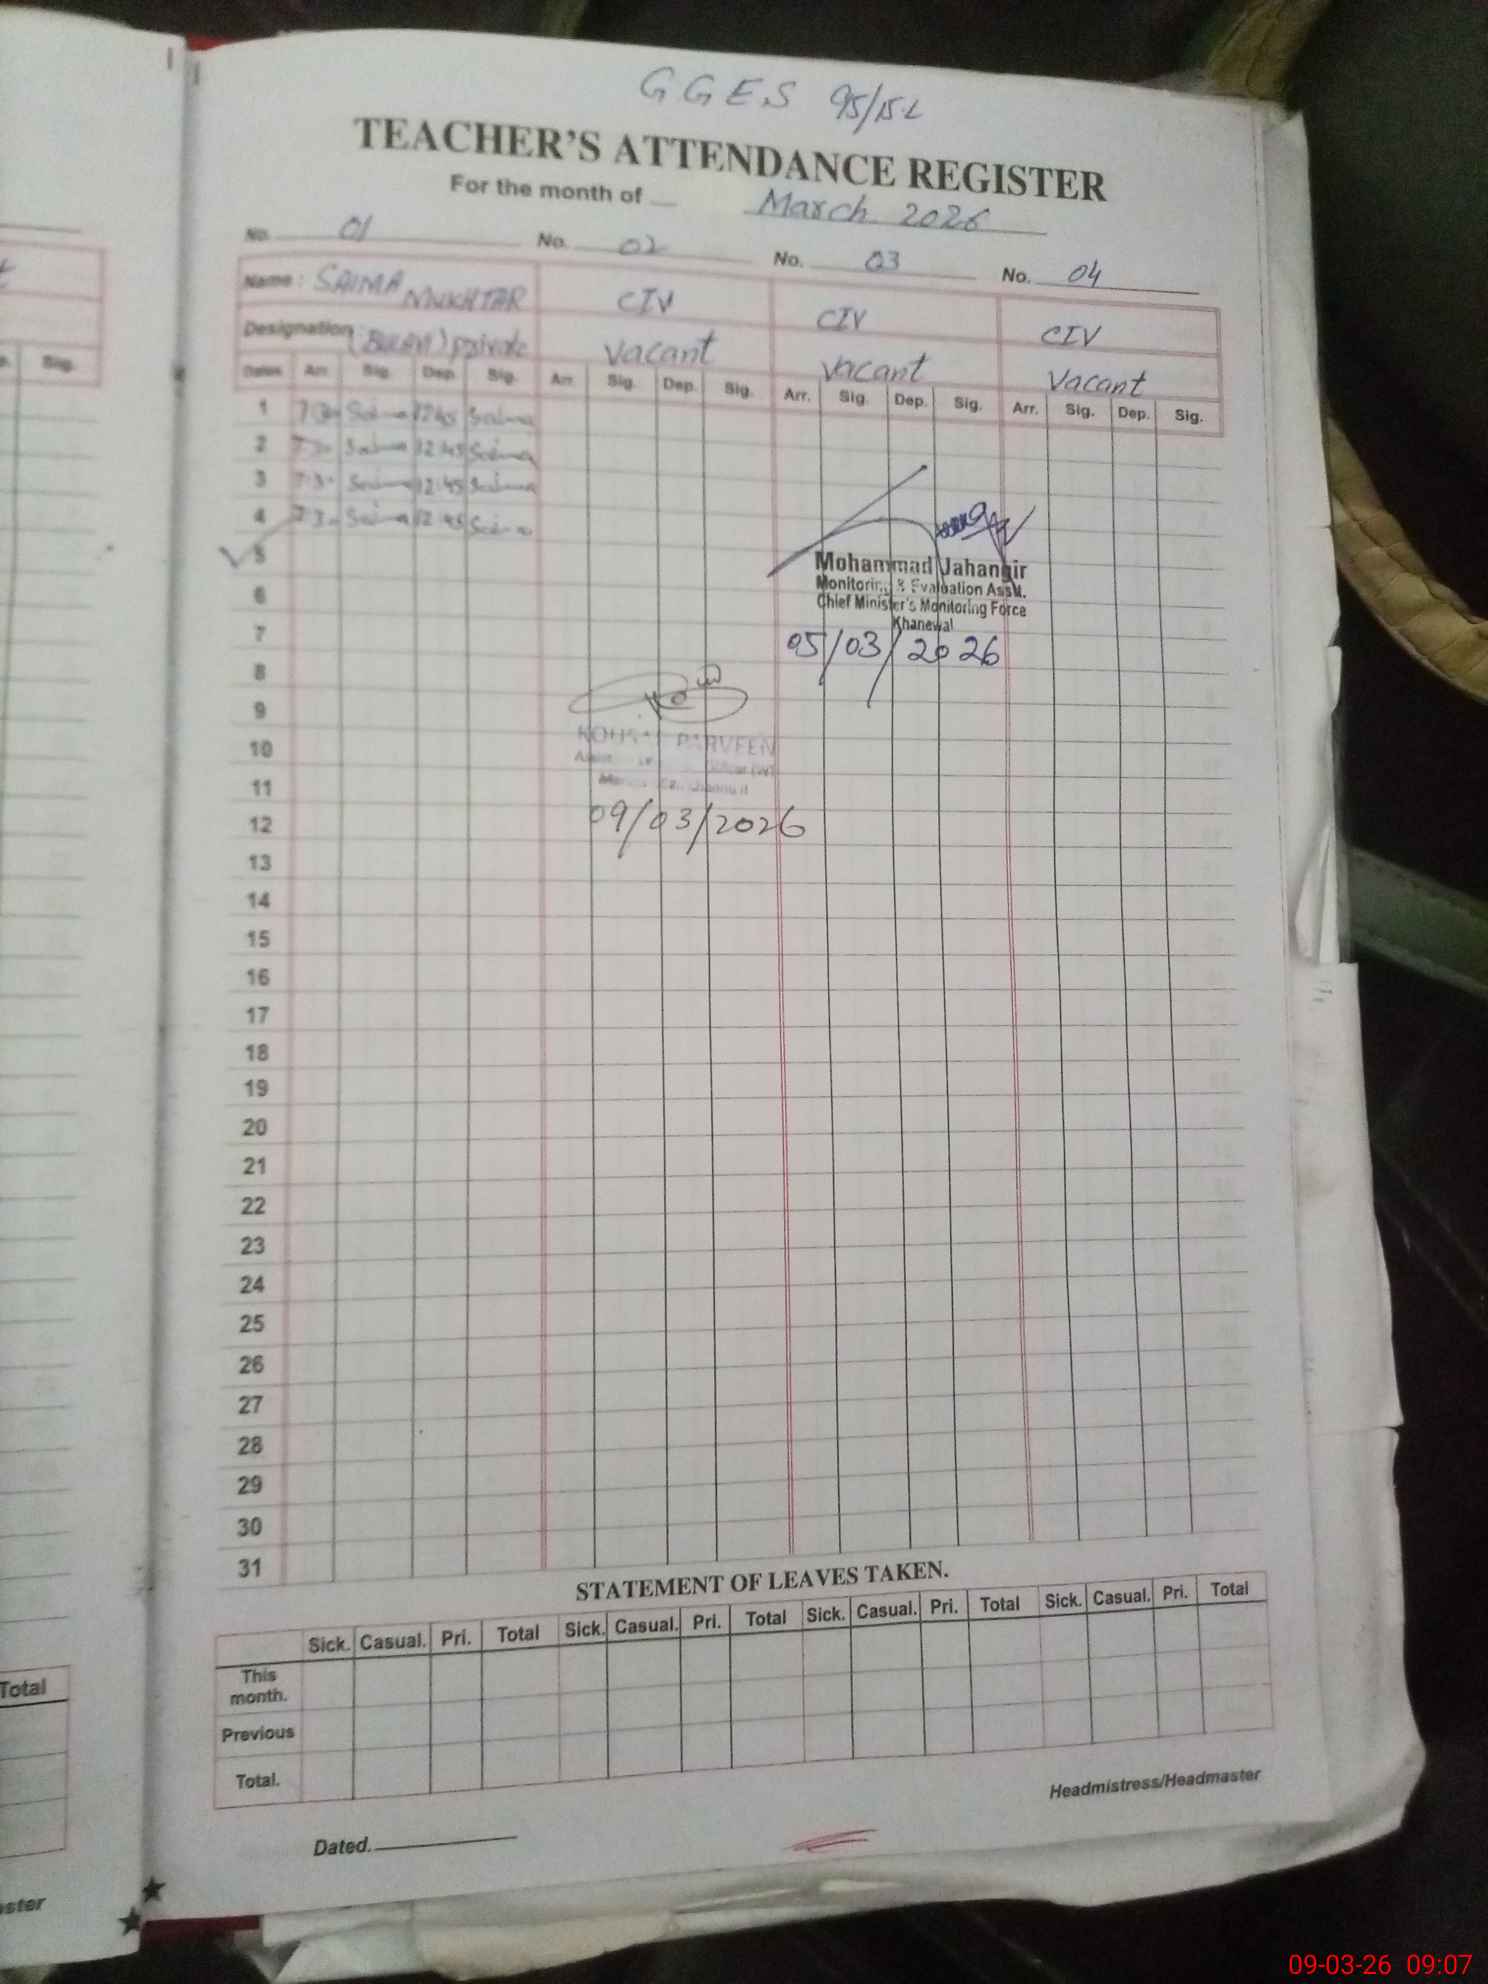 GGES 95/15-L
TEACHER'S ATTENDANCE REGISTER
For the month of March 2026
No. 01 No. 02 No. 03 No. 04
Name : SAIMA MUKHTAR CIV CIV CIV
Designation private Vacant Vacant Vacant
Dates Arr. Sig. Dep. Sig. Arr. Sig. Dep. Sig. Arr. Sig. Dep. Sig. Arr. Sig. Dep. Sig.
1 Saima 12:45 Saima
2 Saima 12:45 Saima
3 7:30 Saima 12:45 Saima
4 Saima 12:45 Saima
5
Mohammad Jahangir
Monitoring & Evaluation Asstt.
6
Chief Minister's Monitoring Force
Khanewal
7
05/03/2026
8
9
10
PARVEEN
11
12 09/03/2026
13
14
15
16
17
18
19
20
21
22
23
24
25
26
27
28
29
30
31
STATEMENT OF LEAVES TAKEN.
Sick. Casual. Pri. Total Sick. Casual. Pri. Total Sick. Casual. Pri. Total Sick. Casual. Pri. Total
This month.
Previous
Total.
Headmistress/Headmaster
Dated.
Sig.
Total
09-03-26 09:07